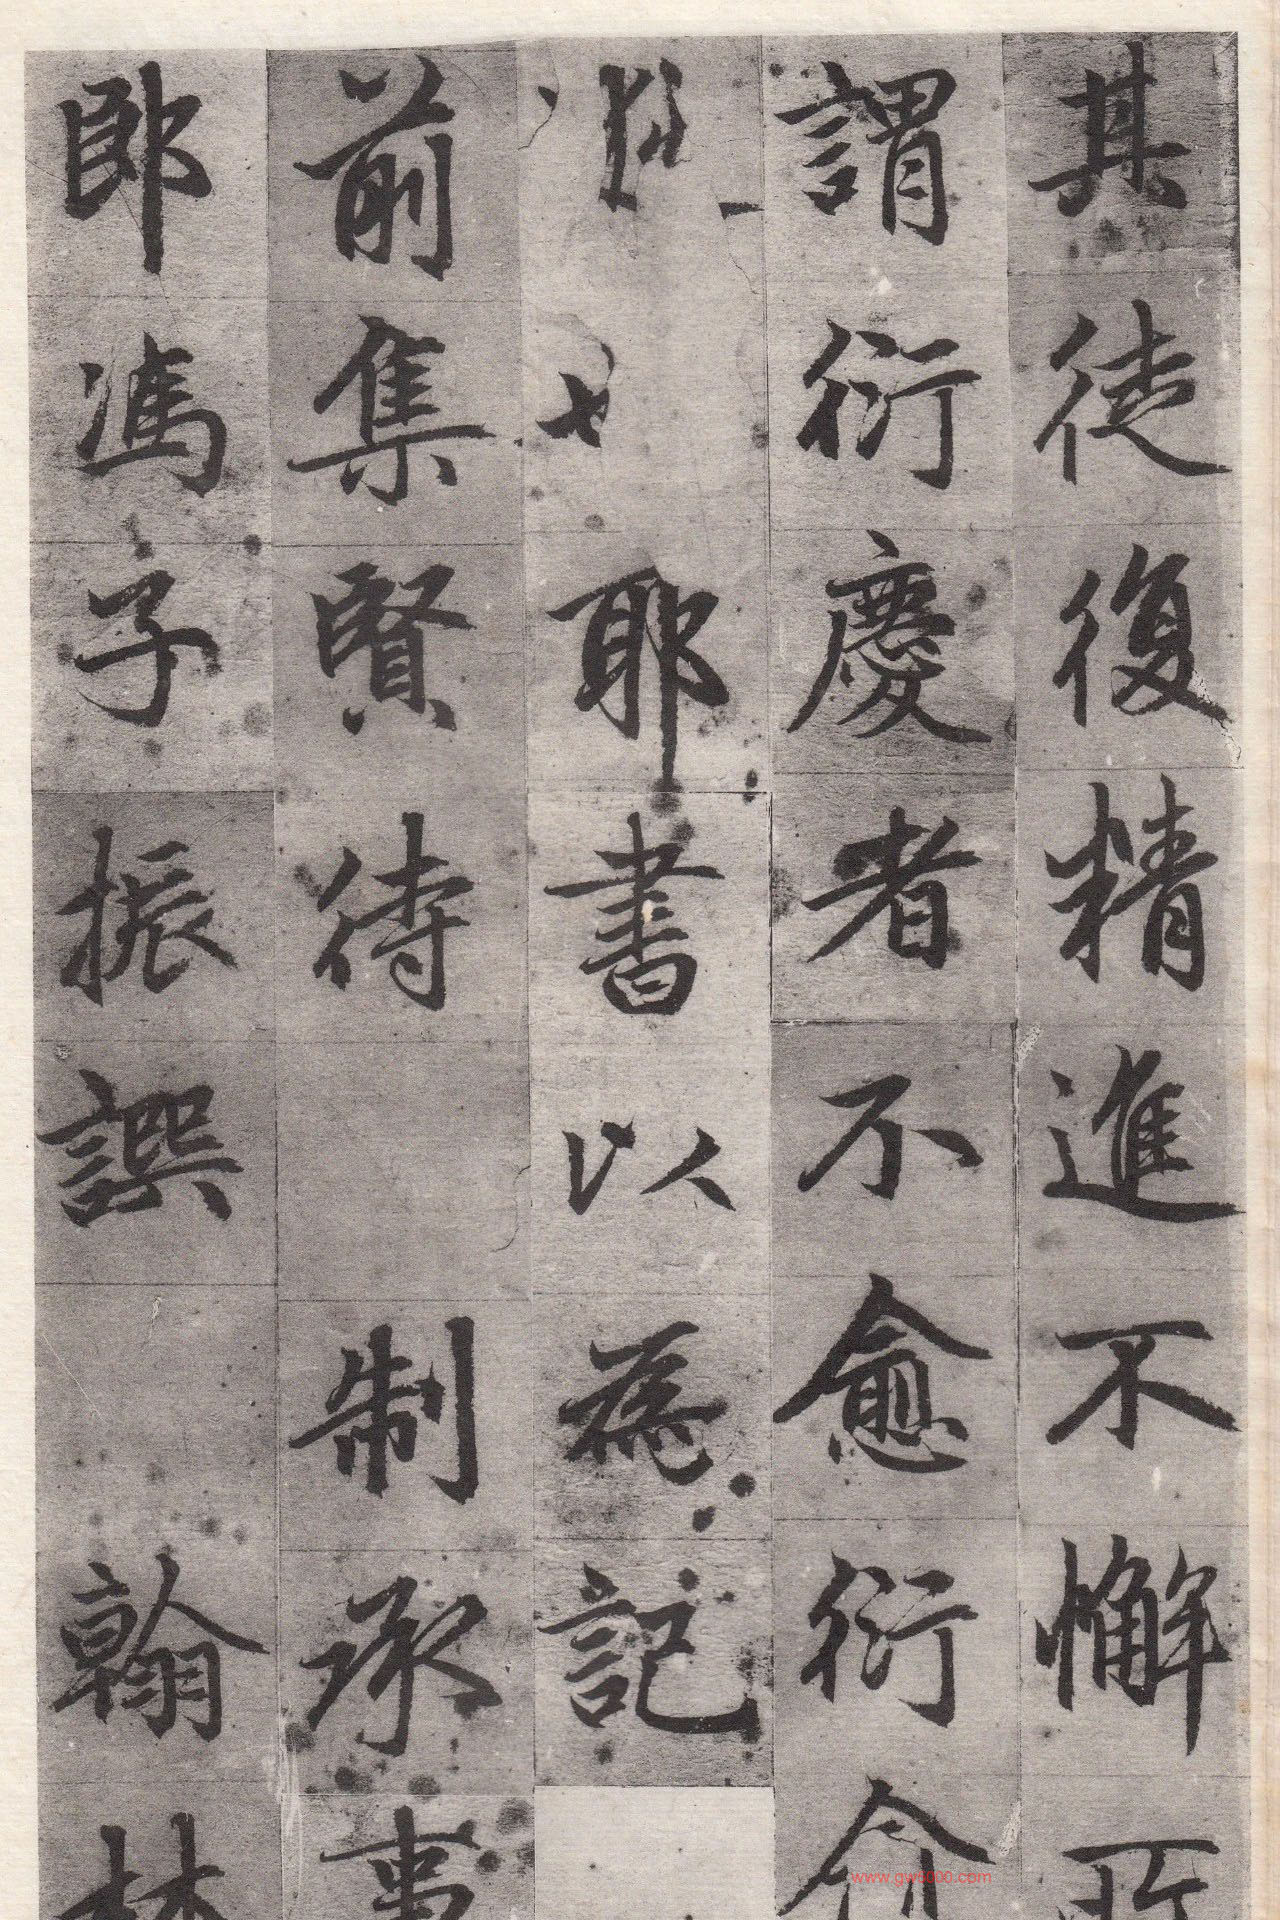 其徒復精進不懈所
謂衍慶者不愈衍
耶書以為記
前集賢待制承事
郎馮子振譔翰林
www.gw8000.com